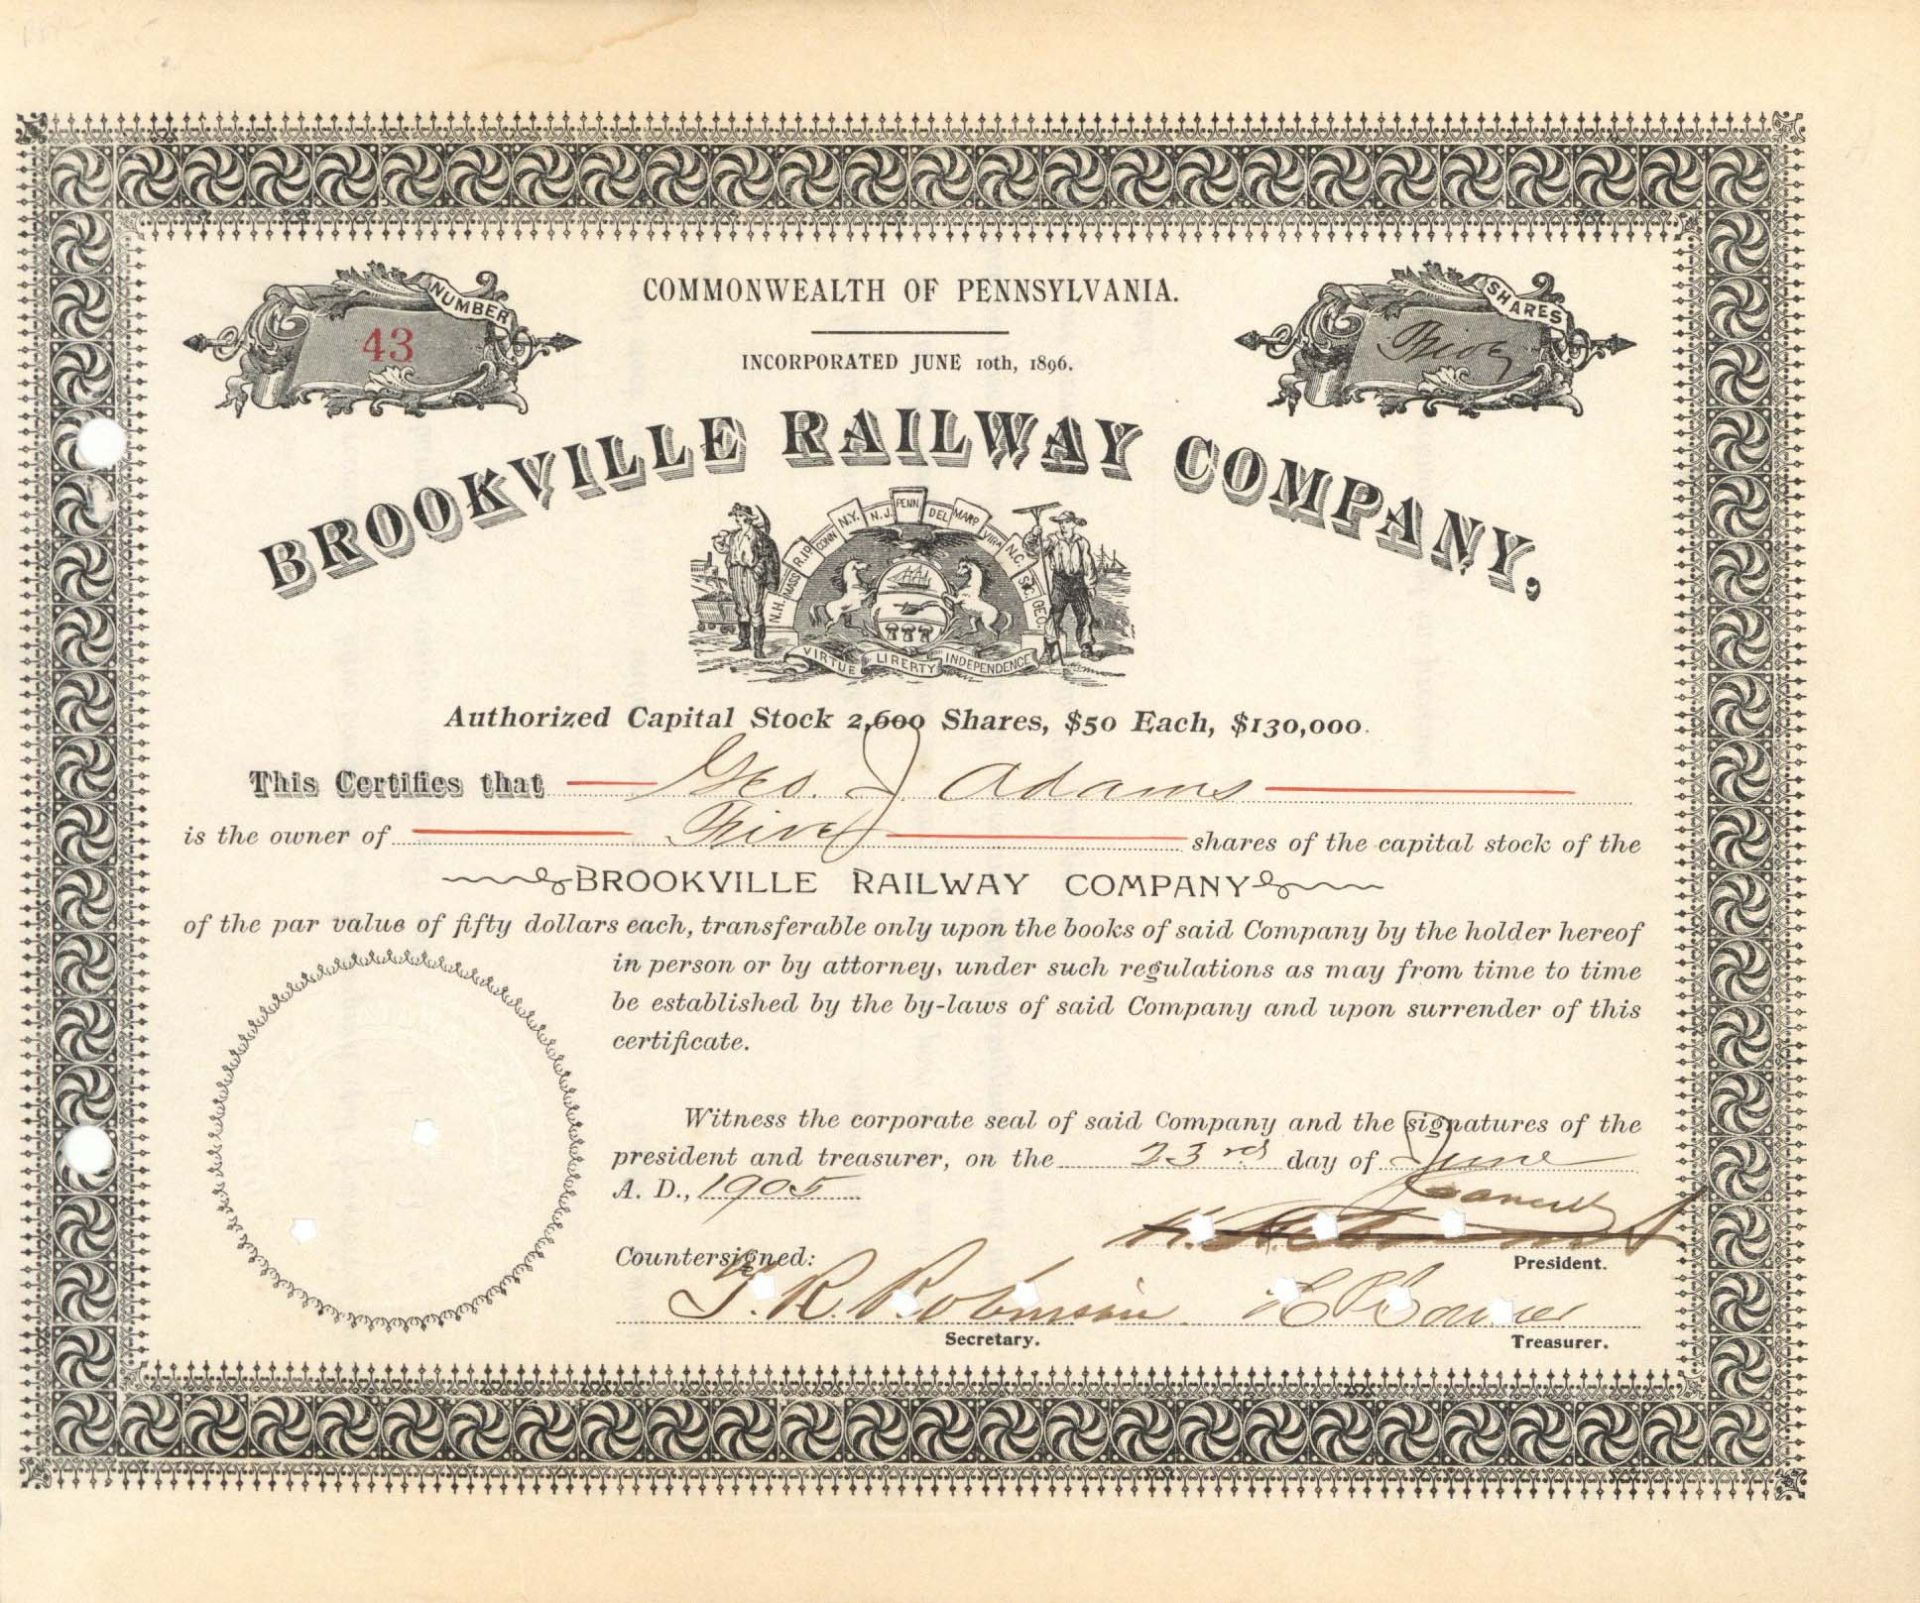 COMMONWEALTH OF PENNSYLVANIA.
NUMBER
43
SHARES
Five
INCORPORATED JUNE 10th, 1896.
BROOKVILLE RAILWAY COMPANY,
N.H. MASS R.ID CONN N.Y. N.J. PENN DEL MARD VIRA N.C. S.C. GEO.
VIRTUE LIBERTY INDEPENDENCE
Authorized Capital Stock 2,600 Shares, $50 Each, $130,000.
This Certifies that Geo. J. Adams
is the owner of Five shares of the capital stock of the
BROOKVILLE RAILWAY COMPANY
of the par value of fifty dollars each, transferable only upon the books of said Company by the holder hereof
in person or by attorney, under such regulations as may from time to time
be established by the by-laws of said Company and upon surrender of this
certificate.
Witness the corporate seal of said Company and the signatures of the
president and treasurer, on the 23rd day of June
A. D., 1905
Countersigned:
President.
T. R. Robinson
Secretary.
Treasurer.